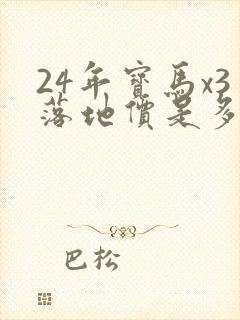 24年寶馬x3
落地價是多
巴松